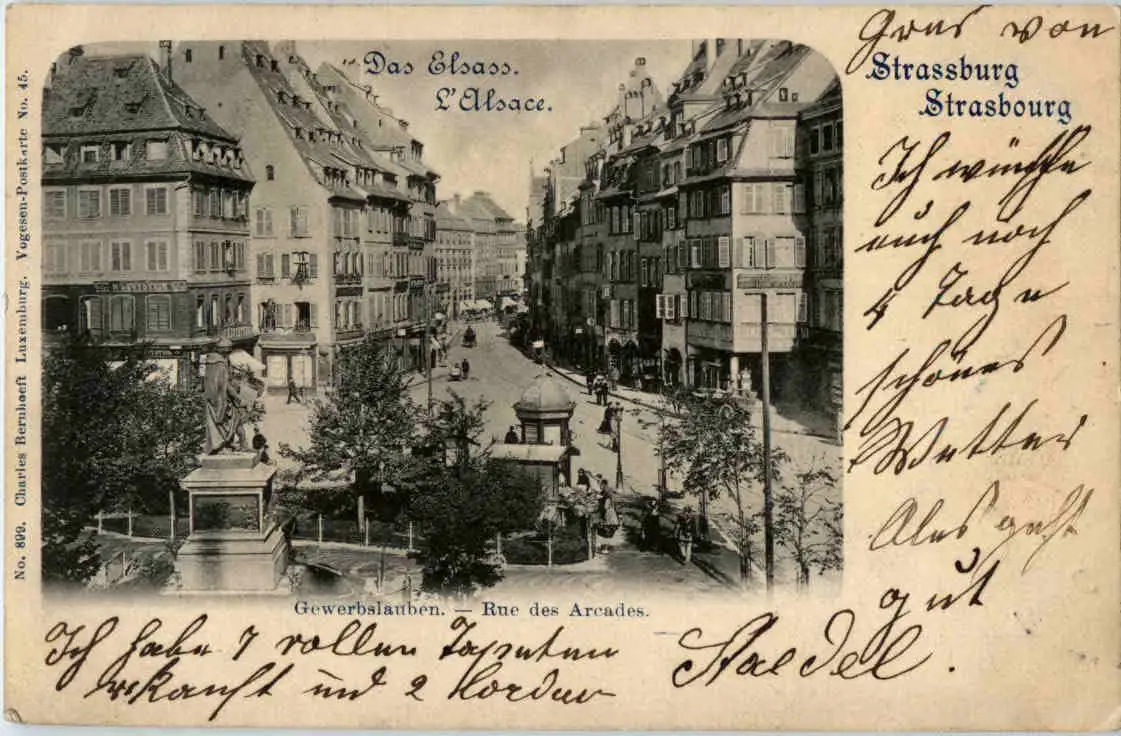 Das Elsass.
L'Alsace.
Gewerbslauben. — Rue des Arcades.
No. 899. Charles Bernhoeft Luxemburg. Vogesen-Postkarte No. 45.
Grus von
Strassburg
Strasbourg
Ich wünsche
euch noch
4 Tage
schönes
Wetter
Ales geht
gut
Ich habe 7 rollen Tapeten
verkauft und 2 borden
Staedel.